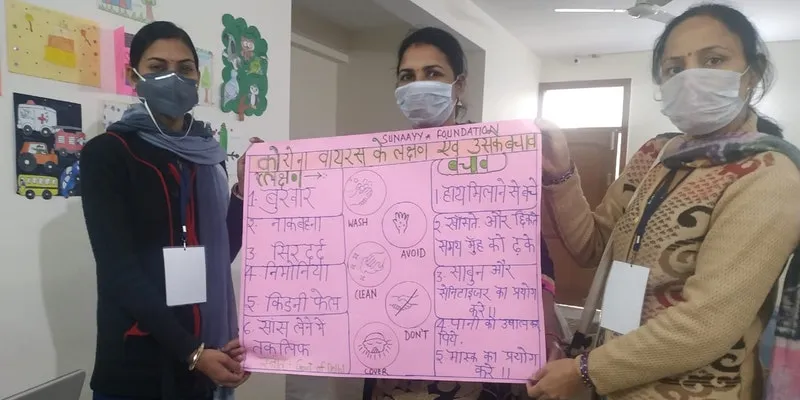 SUNAAYY FOUNDATION
कोरोना वायरस के लक्षण एवं उसके बचाव
लक्षण →
1. बुखार
2. नाकबहना
3 सिर दर्द
4 निमोनिया
5 किडनी फेल
6. सास लेने में
तकलिफ
WASH
AVOID
CLEAN
DON'T
COVER
बचाव
1. हाथ मिलाने से बचे
2 खाँसते और छिकते
समय मुँह को ढ़के
3. साबुन और
सेनिटाइजर का प्रयोग
करे !!
4. पानी को उबालकर
पिये.
5 मास्क का प्रयोग
करे !!
Govt of Delhi